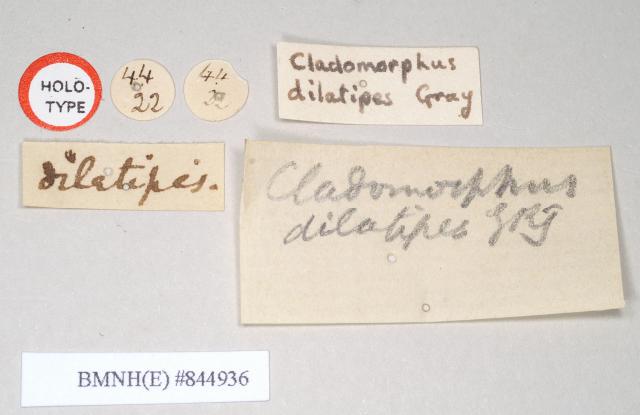 HOLO-
TYPE
44
22
44
22
Cladomorphus
dilatipes Gray
dilatipes.
Cladomorphus
dilatipes GRG
BMNH(E) #844936